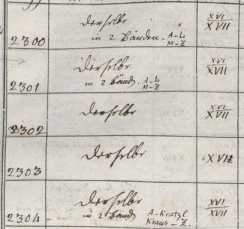 derselbe XVI
2300 in 2 Bänden. A-L M-Z XVII
derselbe XVI
2301 in 2 Bänd. A-L M-Z XVII
derselbe XVI
2302 XVII
2303 derselbe XVII
derselbe XVI
2304 in 2 Bänd. A-Kratzl XVII
Kraus - Z.